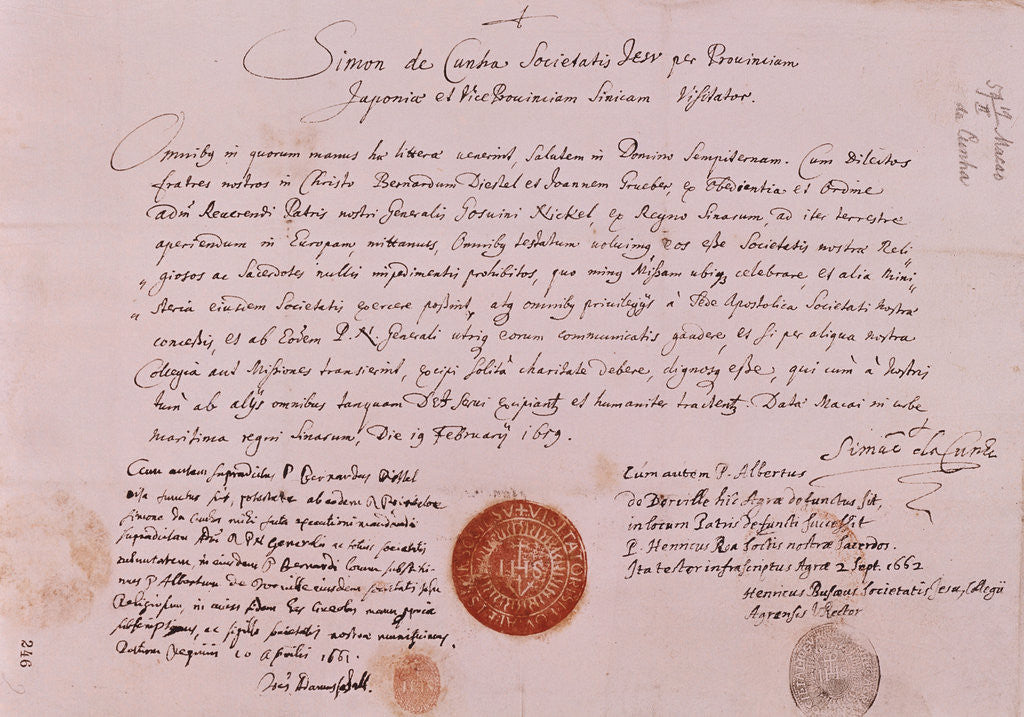 Simon de Cunha Societatis Jesv per Prouinciam
Japoniæ et Vice Prouinciam Sinicam Visitator.
Omniby in quorum manus hæ litteræ uenerint, salutem in Domino sempiternam. Cum Dilectos
fratres nostros in Christo Bernardum Diestel et Joannem Grueber, ex Obedientia et Ordine
adm̃ Reuerendi Patris nostri Generalis Gosuini Nickel, ex Regno Sinarum, ad iter terrestre
aperiendum in Europam, mittamus, Omniby testatum uoluimq eos eße Societatis nostræ Reli„
„giosos ac Sacerdotes nullis impedimentis prohibitos, quo minq Mißam ubiq celebrare, et alia mini„
„steria eiusdem Societatis exercere poßint, atq omniby priuilegijs à Sede Apostolica Societati nostræ
conceßis, et ab Eodem P. N. Generali utriq eorum communicatis gaudere, et si per aliqua nostra
Collegia aut Mißiones transierint, excipi solita charitate debere, dignosq eße, qui cum à nostris
tum ab alijs omnibus tanquam Dei serui excipiantr et humaniter tractentr. Data Macai in urbe
maritima regni Sinarum, Die 19 Februarij 1659.
Simaõ da Cunha
Cum autem supradictus P. Bernardus Diestel
vita functus sit, potestate ab eodem R. P. Visitatore
Simone da Cunha mihi facta
supradictam Adm̃ R. P. N. Generalis ac totius societatis
in eiusdem P. Bernardi locum substitui-
mus P. Albertum de Dorville eiusdem societatis Jesu
Religiosum, in cuius fidem has
subscripsimus, ac sigillo societatis nostræ muniuimus.
10 Aprilis 1661.
Joẽs Adamus Schall.
Cum autem P. Albertus
de Dorville hic Agræ defunctus sit,
in locum Patris defuncti succeßit
P. Henricus Roa soctis nostræ sacerdos.
Ita testor infrascriptus Agræ 2 Sept. 1662
Henricus Busæus Societatis Jesu, Collegii
Agrensis Rector
IHS
57
II
Macao
da Cunha
246